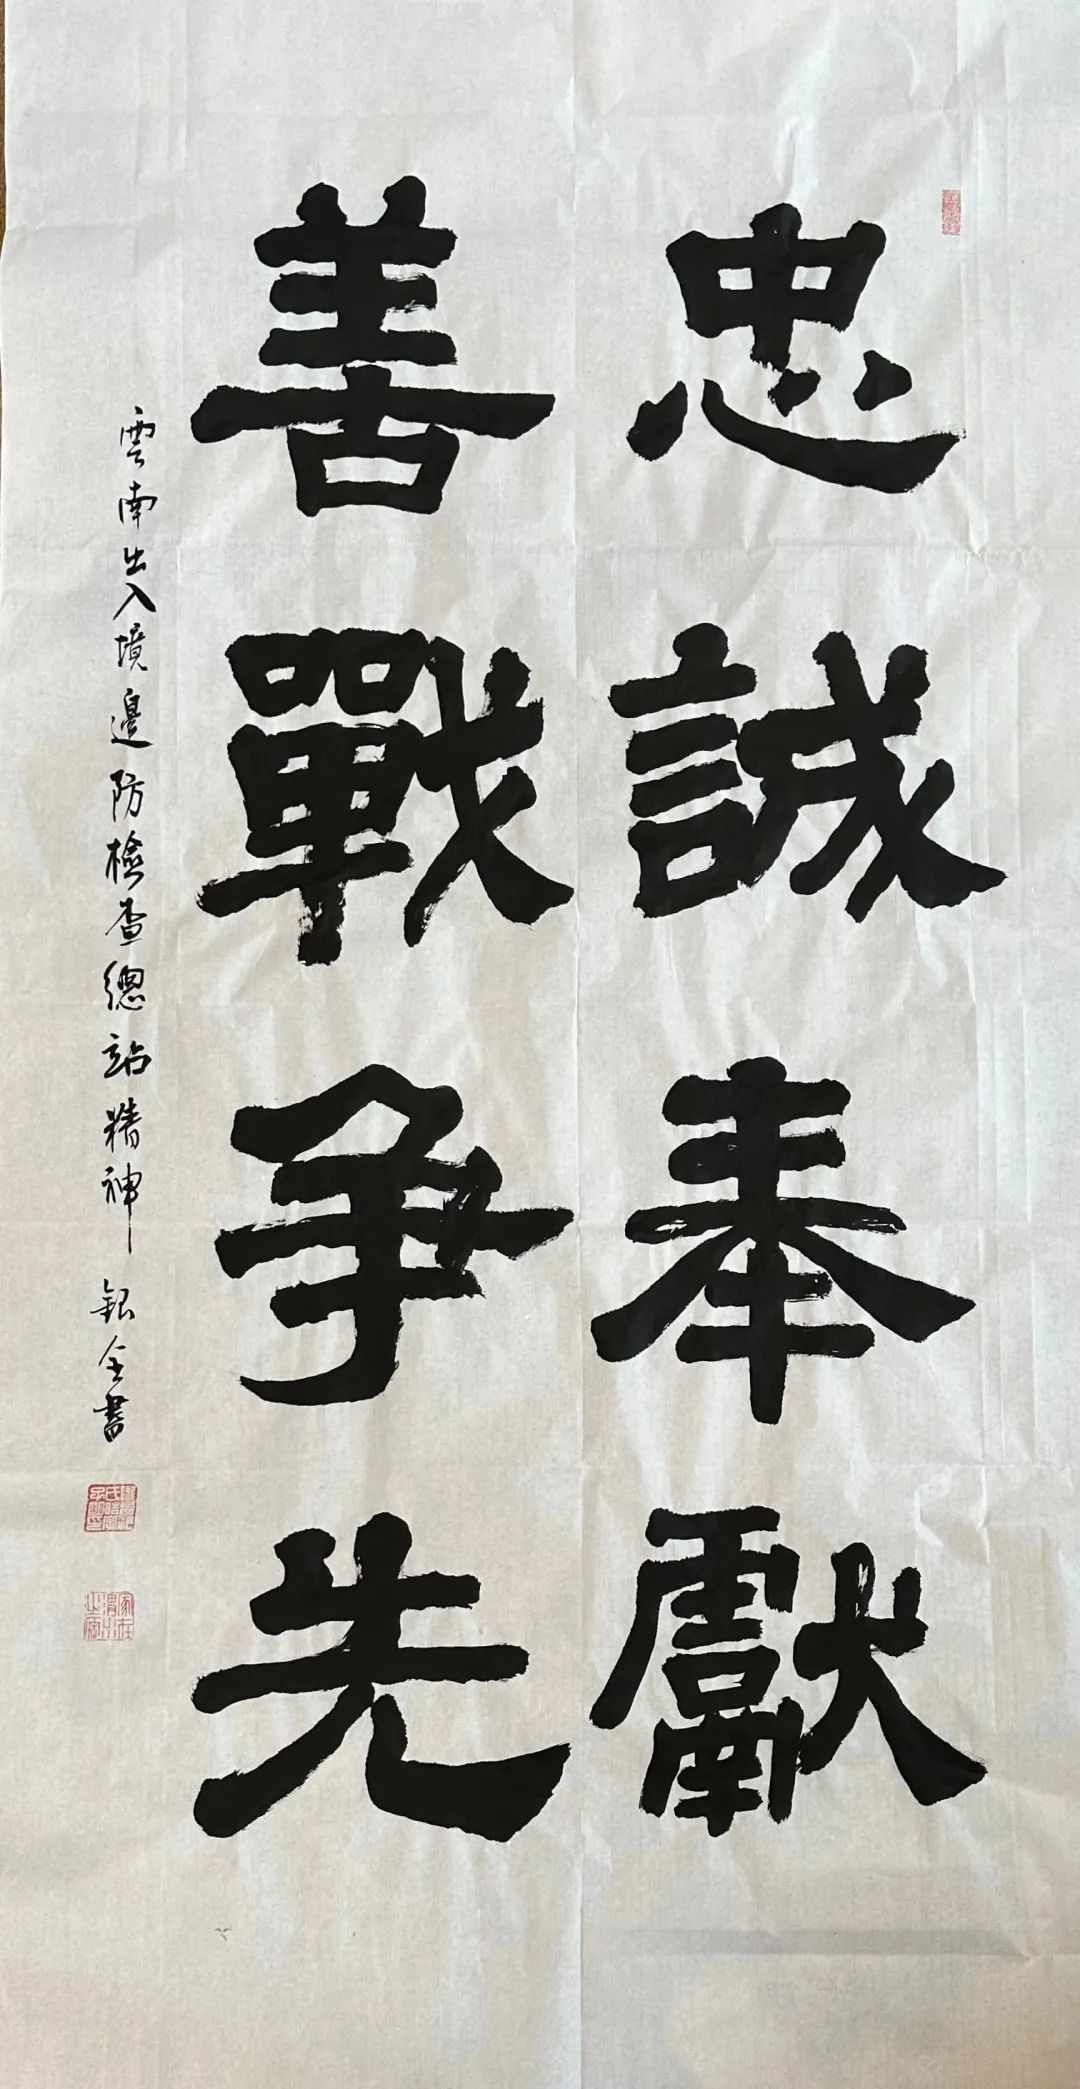 忠誠奉獻
善戰爭先
雲南出入境邊防檢查總站精神 銀全書